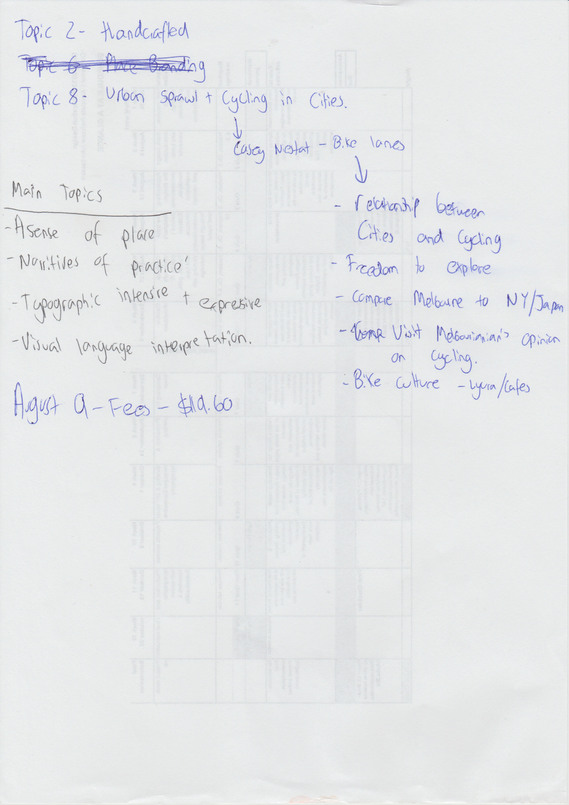 Topic 2 - Handcrafted
Topic 6 - Place Branding
Topic 8 - Urban Sprawl + Cycling in Cities.
Casey Niestat - Bike lanes
Main Topics
- A sense of place
- Narritives of practice'
- Typographic intensive + expresive
- Visual language interpretation.
- relationship between
Cities and Cycling
- Freedom to explore
- Compare Melbourne to NY/Japan
- Visit Melbournian's opinion
on Cycling.
- Bike culture - Lycra/Cafes
August 9 - Fees - $119.60